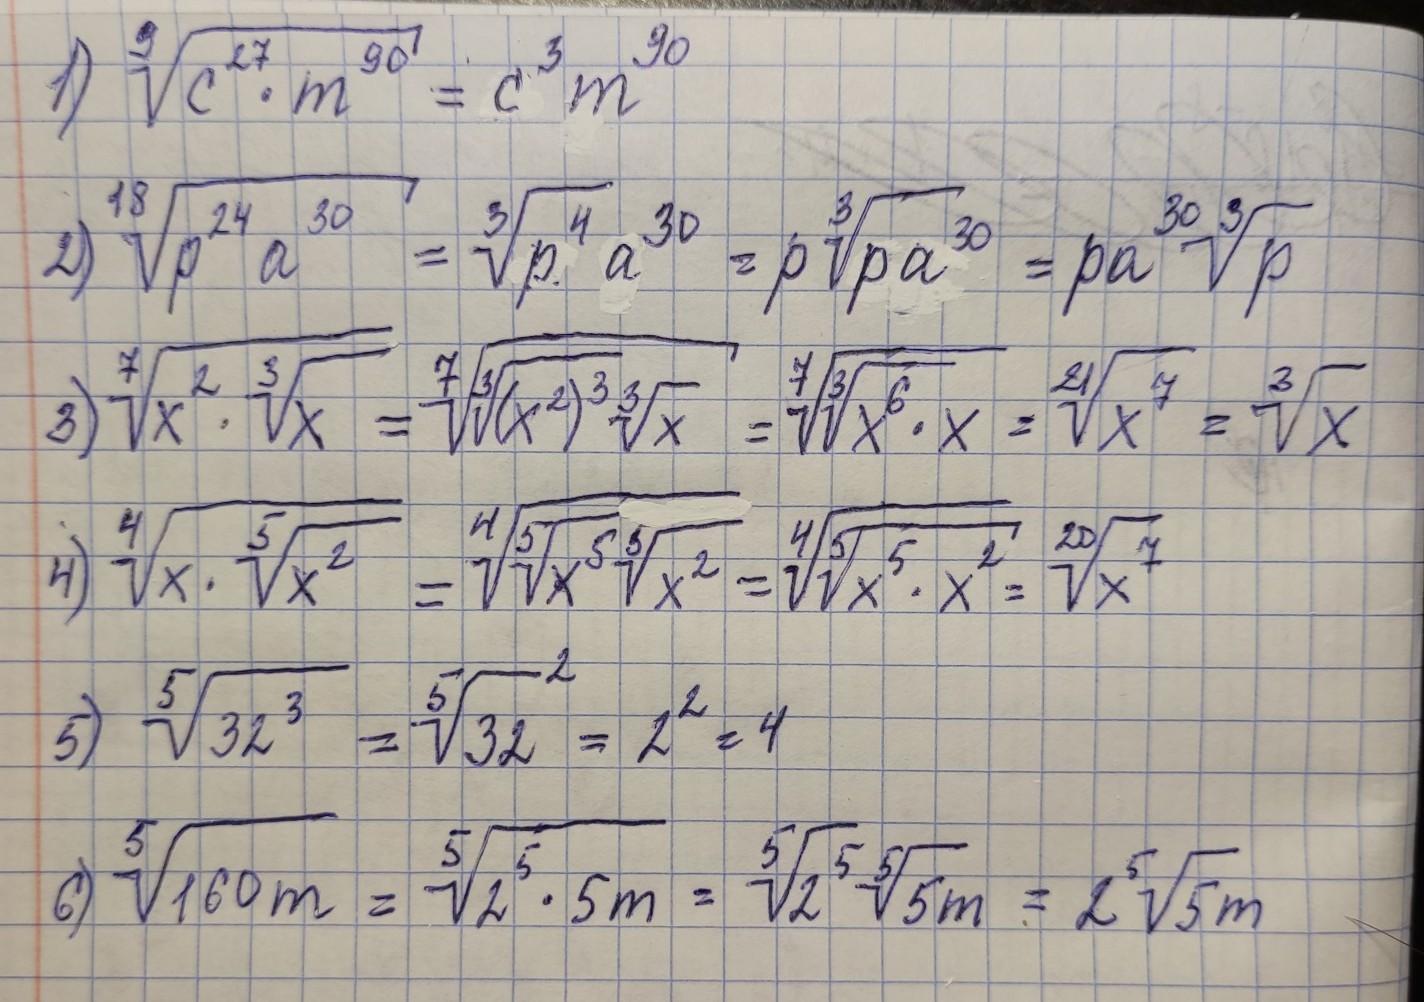 1) ⁹√(c²⁷ · m⁹⁰) = c³m⁹⁰
2) ¹⁸√(p²⁴a³⁰) = ³√(p⁴) a³⁰ = p ³√(pa³⁰) = pa³⁰ ³√p
3) ⁷√(x² · ³√x) = ⁷√(³√((x²)³) ³√x) = ⁷√(³√(x⁶ · x)) = ²¹√(x⁷) = ³√x
4) ⁴√(x · ⁵√(x²)) = ⁴√(⁵√(x⁵) ⁵√(x²)) = ⁴√(⁵√(x⁵ · x²)) = ²⁰√(x⁷)
5) ⁵√(32³) = ⁵√32² = 2² = 4
6) ⁵√(160m) = ⁵√(2⁵ · 5m) = ⁵√(2⁵) ⁵√(5m) = 2 ⁵√(5m)